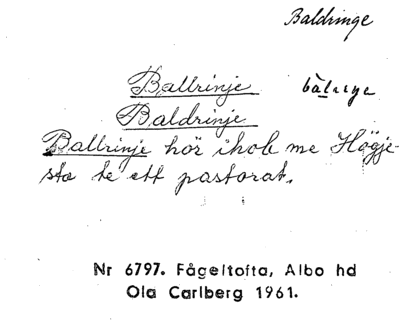 Baldringe
Ballrinje
Baldrinje
Ballrinje hör ihob me Högje-
sta te ett pastorat.
Nr 6797. Fågeltofta, Albo hd
Ola Carlberg 1961.